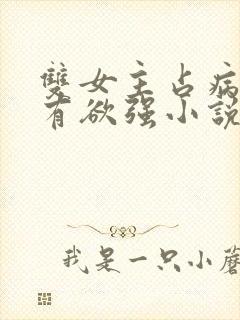 雙女主占病
有欲强小說
我是一只小蘑